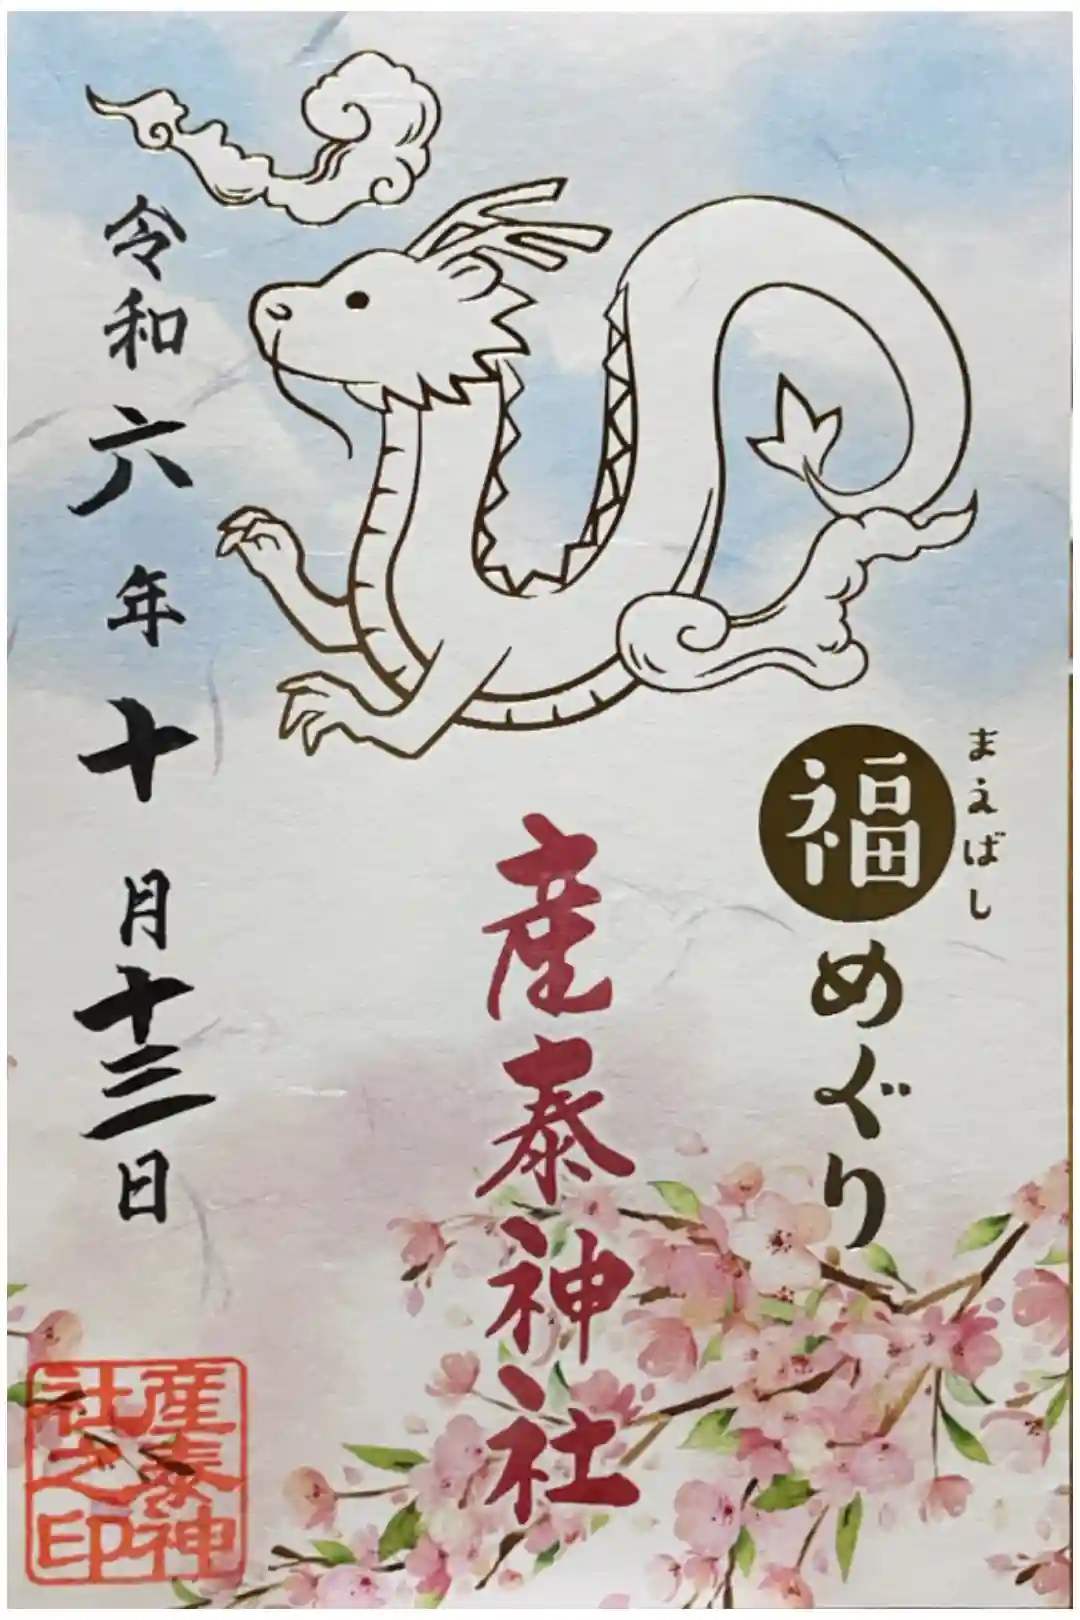 まえばし
福めぐり
産泰神社
令和六年十月十三日
産泰神
社之印